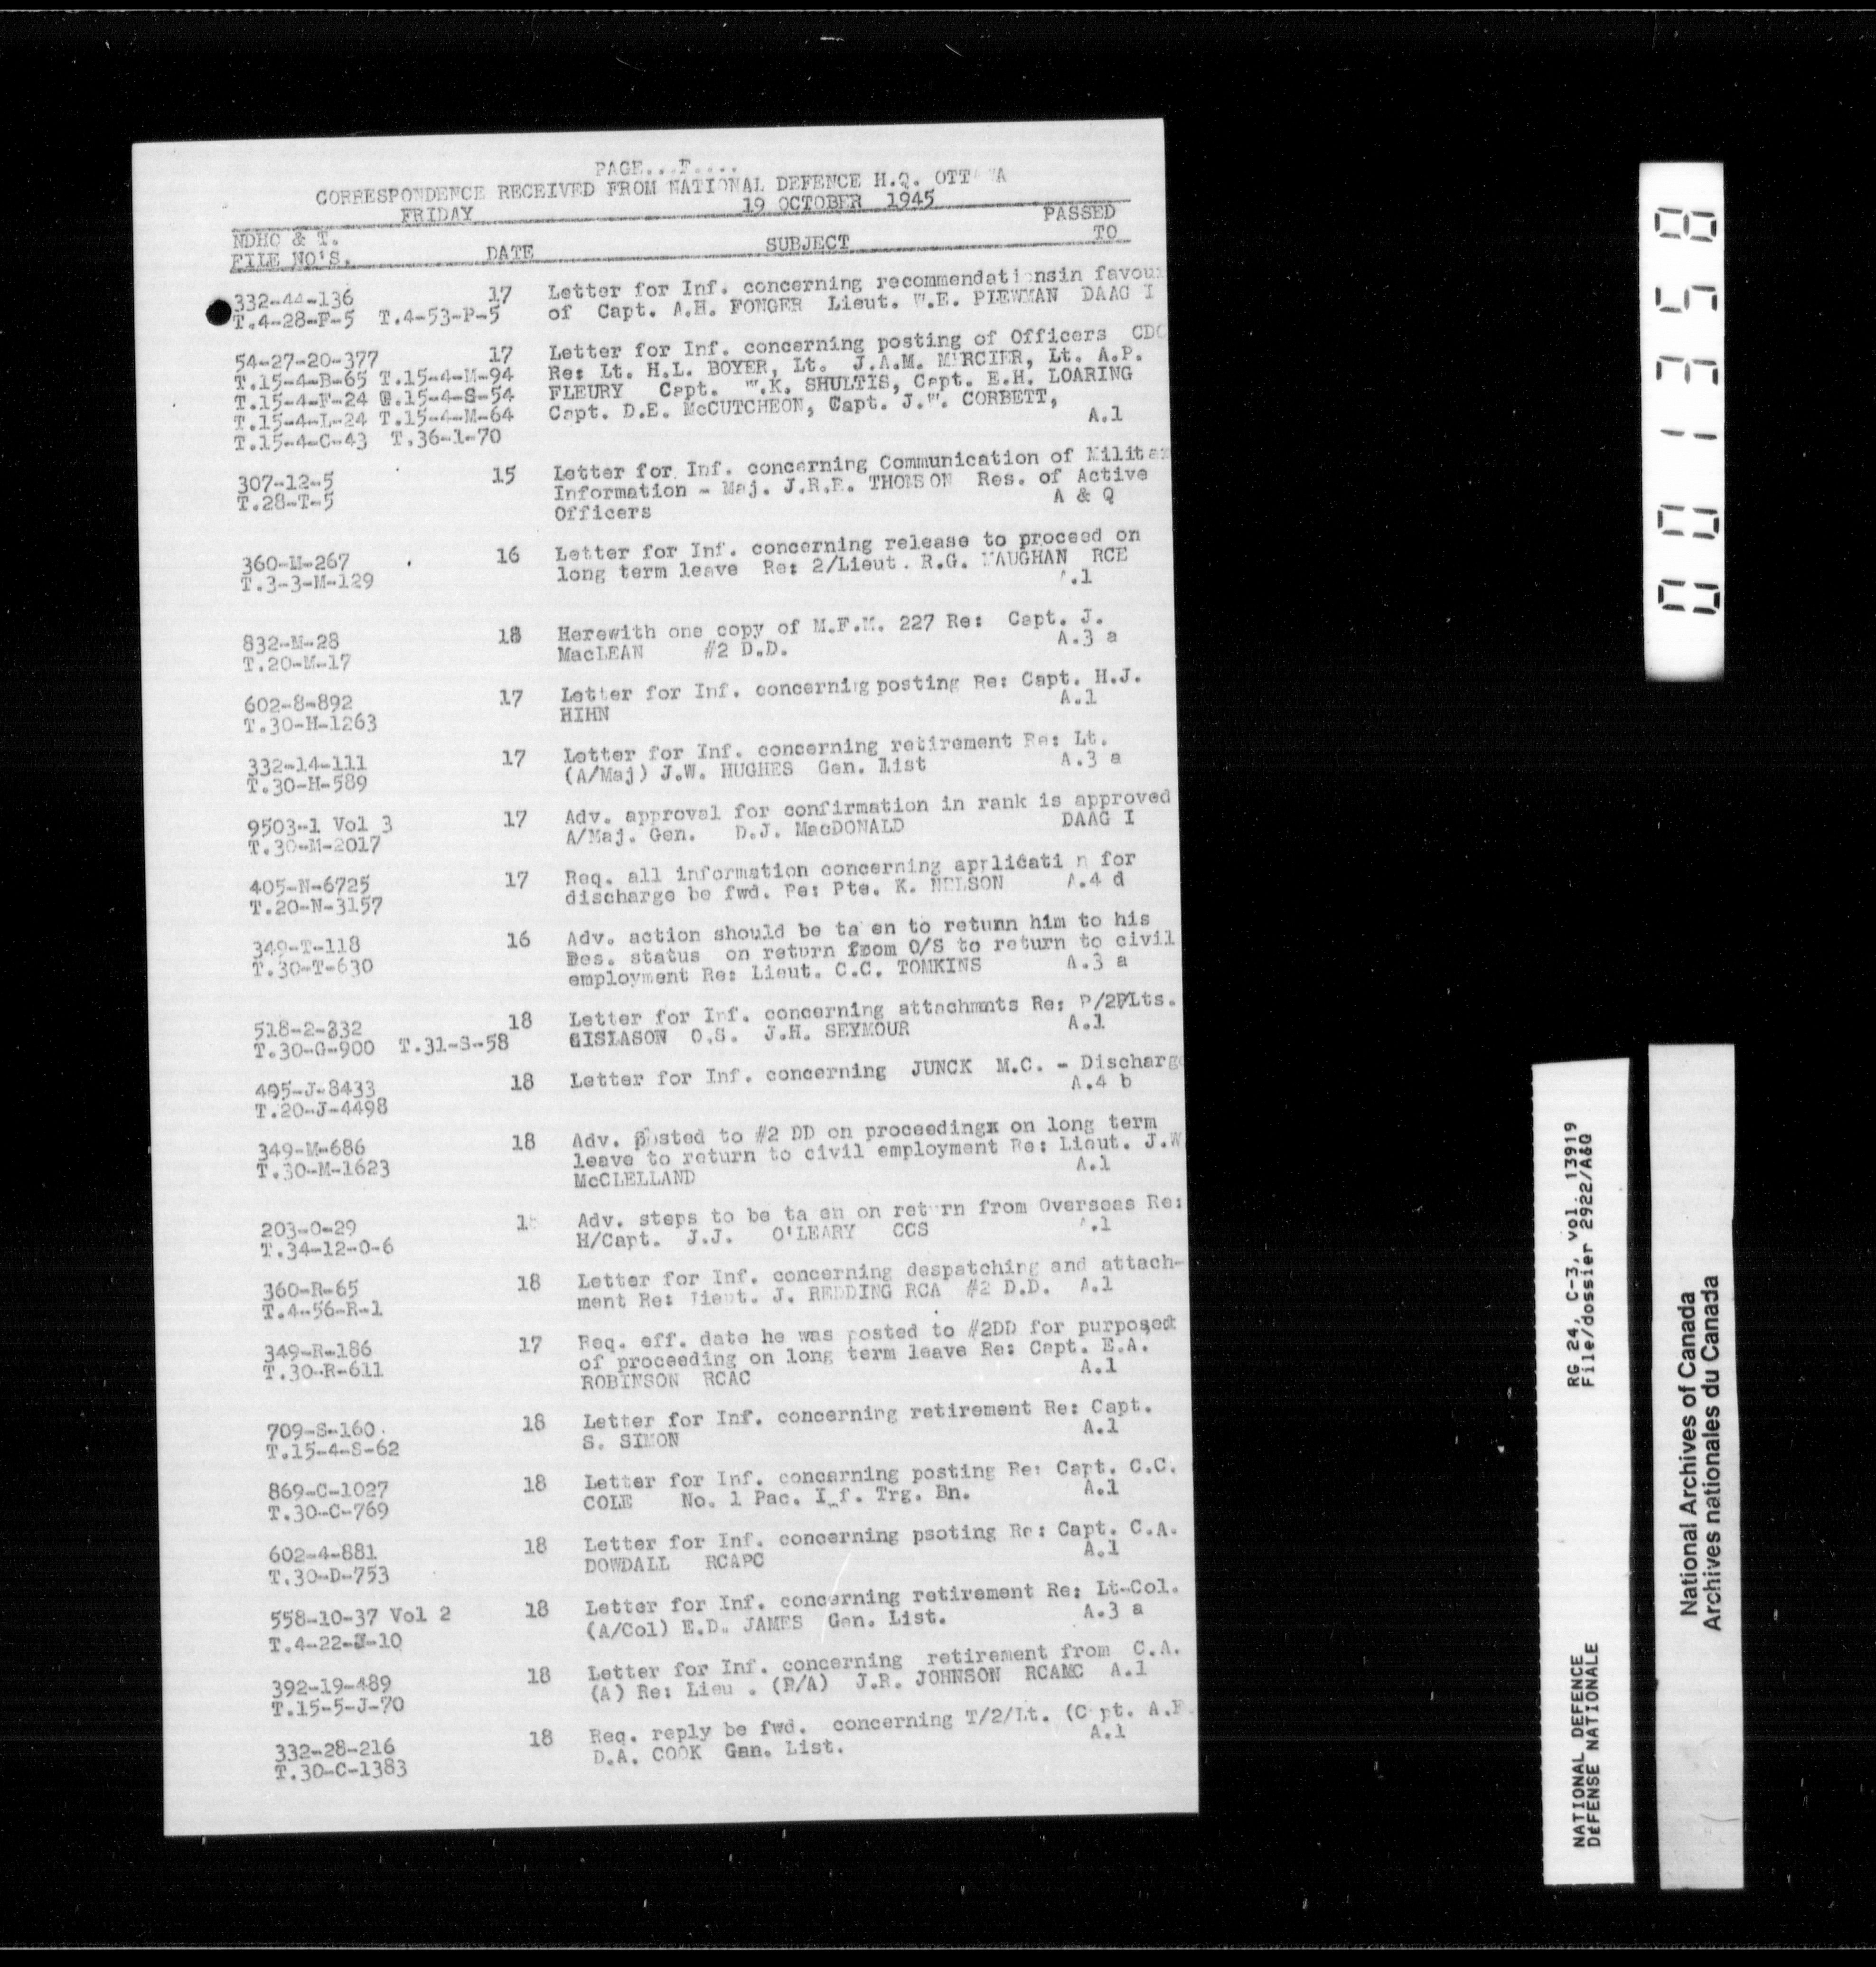 PAGE...F....
CORRESPONDENCE RECEIVED FROM NATIONAL DEFENCE H.Q. OTTAWA
FRIDAY 19 OCTOBER 1945
NDHQ & T. PASSED
FILE NO'S. DATE SUBJECT TO
332-44-136 17 Letter for Inf. concerning recommendationsin favour
T.4-28-F-5 T.4-53-P-5 of Capt. A.H. FONGER Lieut. W.E. PLEWMAN DAAG I
54-27-20-377 17 Letter for Inf. concerning posting of Officers CDC
T.15-4-B-65 T.15-4-M-94 Re: Lt. H.L. BOYER, Lt. J.A.M. MERCIER, Lt. A.P.
T.15-4-F-24 T.15-4-S-54 FLEURY Capt. W.K. SHULTIS, Capt. E.H. LOARING
T.15-4-L-24 T.15-4-M-64 Capt. D.E. McCUTCHEON, Capt. J.W. CORBETT,
T.15-4-C-43 T.36-1-70 A.1
307-12-5 15 Letter for Inf. concerning Communication of Militar
T.28-T-5 Information - Maj. J.R.E. THOMSON Res. of Active
Officers A & Q
360-M-267 16 Letter for Inf. concerning release to proceed on
T.3-3-M-129 long term leave Re: 2/Lieut. R.G. MAUGHAN RCE
A.1
832-M-28 18 Herewith one copy of M.F.M. 227 Re: Capt. J.
T.20-M-17 MacLEAN #2 D.D. A.3 a
602-8-892 17 Letter for Inf. concerning posting Re: Capt. H.J.
T.30-H-1263 HIHN A.1
332-14-111 17 Letter for Inf. concerning retirement Re: Lt.
T.30-H-589 (A/Maj) J.W. HUGHES Gen. List A.3 a
9503-1 Vol 3 17 Adv. approval for confirmation in rank is approved
T.30-M-2017 A/Maj. Gen. D.J. MacDONALD DAAG I
405-N-6725 17 Req. all information concerning applicati n for
T.20-N-3157 discharge be fwd. Re: Pte. K. NELSON A.4 d
349-T-118 16 Adv. action should be ta en to return him to his
T.30-T-630 Res. status on return from O/S to return to civil
employment Re: Lieut. C.C. TOMKINS A.3 a
518-2-332 18 Letter for Inf. concerning attachmnts Re: P/2/Lts.
T.30-G-900 T.31-S-58 GISLASON O.S. J.H. SEYMOUR A.1
405-J-8433 18 Letter for Inf. concerning JUNCK M.C. - Discharge
T.20-J-4498 A.4 b
349-M-686 18 Adv. posted to #2 DD on proceedingx on long term
T.30-M-1623 leave to return to civil employment Re: Lieut. J.W
McCLELLAND A.1
203-O-29 Adv. steps to be ta en on return from Overseas Re:
T.34-12-O-6 H/Capt. J.J. O'LEARY CCS A.1
360-R-65 18 Letter for Inf. concerning despatching and attach-
T.4-56-R-1 ment Re: Lieut. J. REDDING RCA #2 D.D. A.1
349-R-186 17 Req. eff. date he was posted to #2DD for purposed
T.30-R-611 of proceeding on long term leave Re: Capt. E.A.
ROBINSON RCAC A.1
709-S-160 18 Letter for Inf. concerning retirement Re: Capt.
T.15-4-S-62 S. SIMON A.1
869-C-1027 18 Letter for Inf. concerning posting Re: Capt. C.C.
T.30-C-769 COLE No. 1 Pac. I_f. Trg. Bn. A.1
602-4-881 18 Letter for Inf. concerning psoting Re: Capt. C.A.
T.30-D-753 DOWDALL RCAPC A.1
558-10-37 Vol 2 18 Letter for Inf. concerning retirement Re: Lt-Col.
T.4-22-J-10 (A/Col) E.D. JAMES Gen. List. A.3 a
392-19-489 18 Letter for Inf. concerning retirement from C.A.
T.15-5-J-70 (A) Re: Lieu . (P/A) J.R. JOHNSON RCAMC A.1
332-28-216 18 Req. reply be fwd. concerning T/2/Lt. (C pt. A.F.
T.30-C-1383 D.A. COOK Gen. List. A.1
001358
RG 24, C-3, vol. 13919
File/dossier 2922/A&Q
NATIONAL DEFENCE
DÉFENSE NATIONALE
National Archives of Canada
Archives nationales du Canada